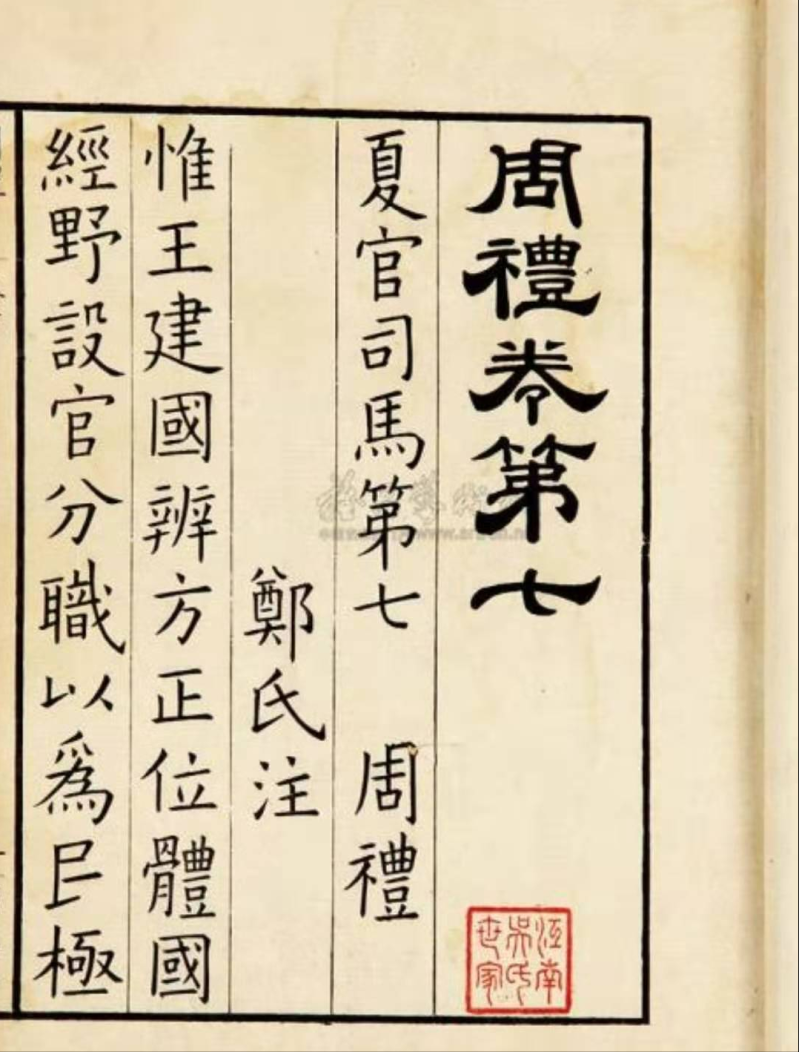 周禮卷第七
夏官司馬第七　周禮
鄭氏注
惟王建國辨方正位體國
經野設官分職以爲民極
江南
吳氏
世家